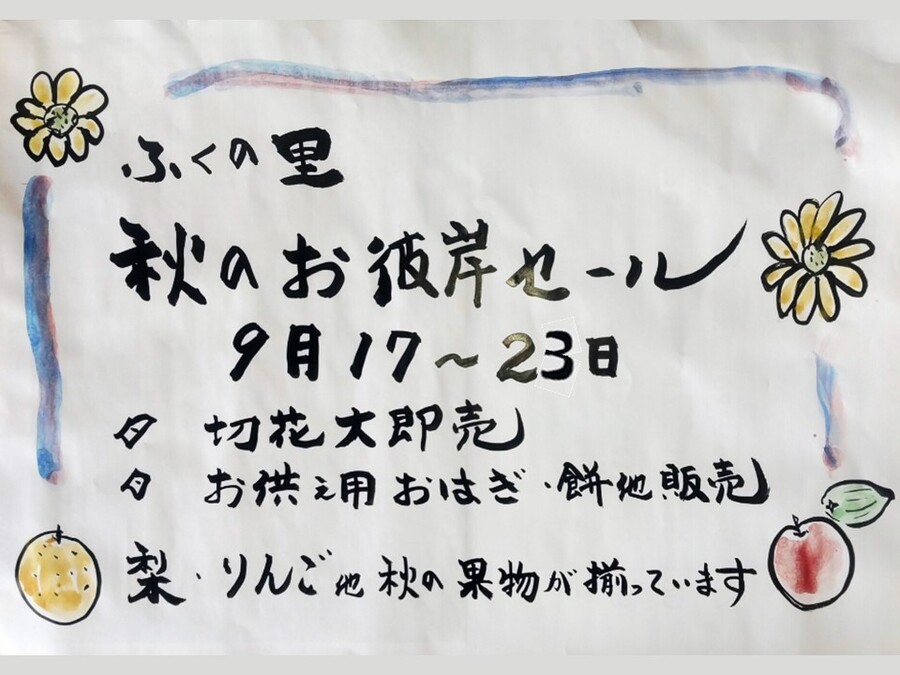 ふくの里
秋のお彼岸セール
9月17～23日
夕 切花大即売
夕 お供え用おはぎ・餅他販売
梨・りんご他秋の果物が揃っています